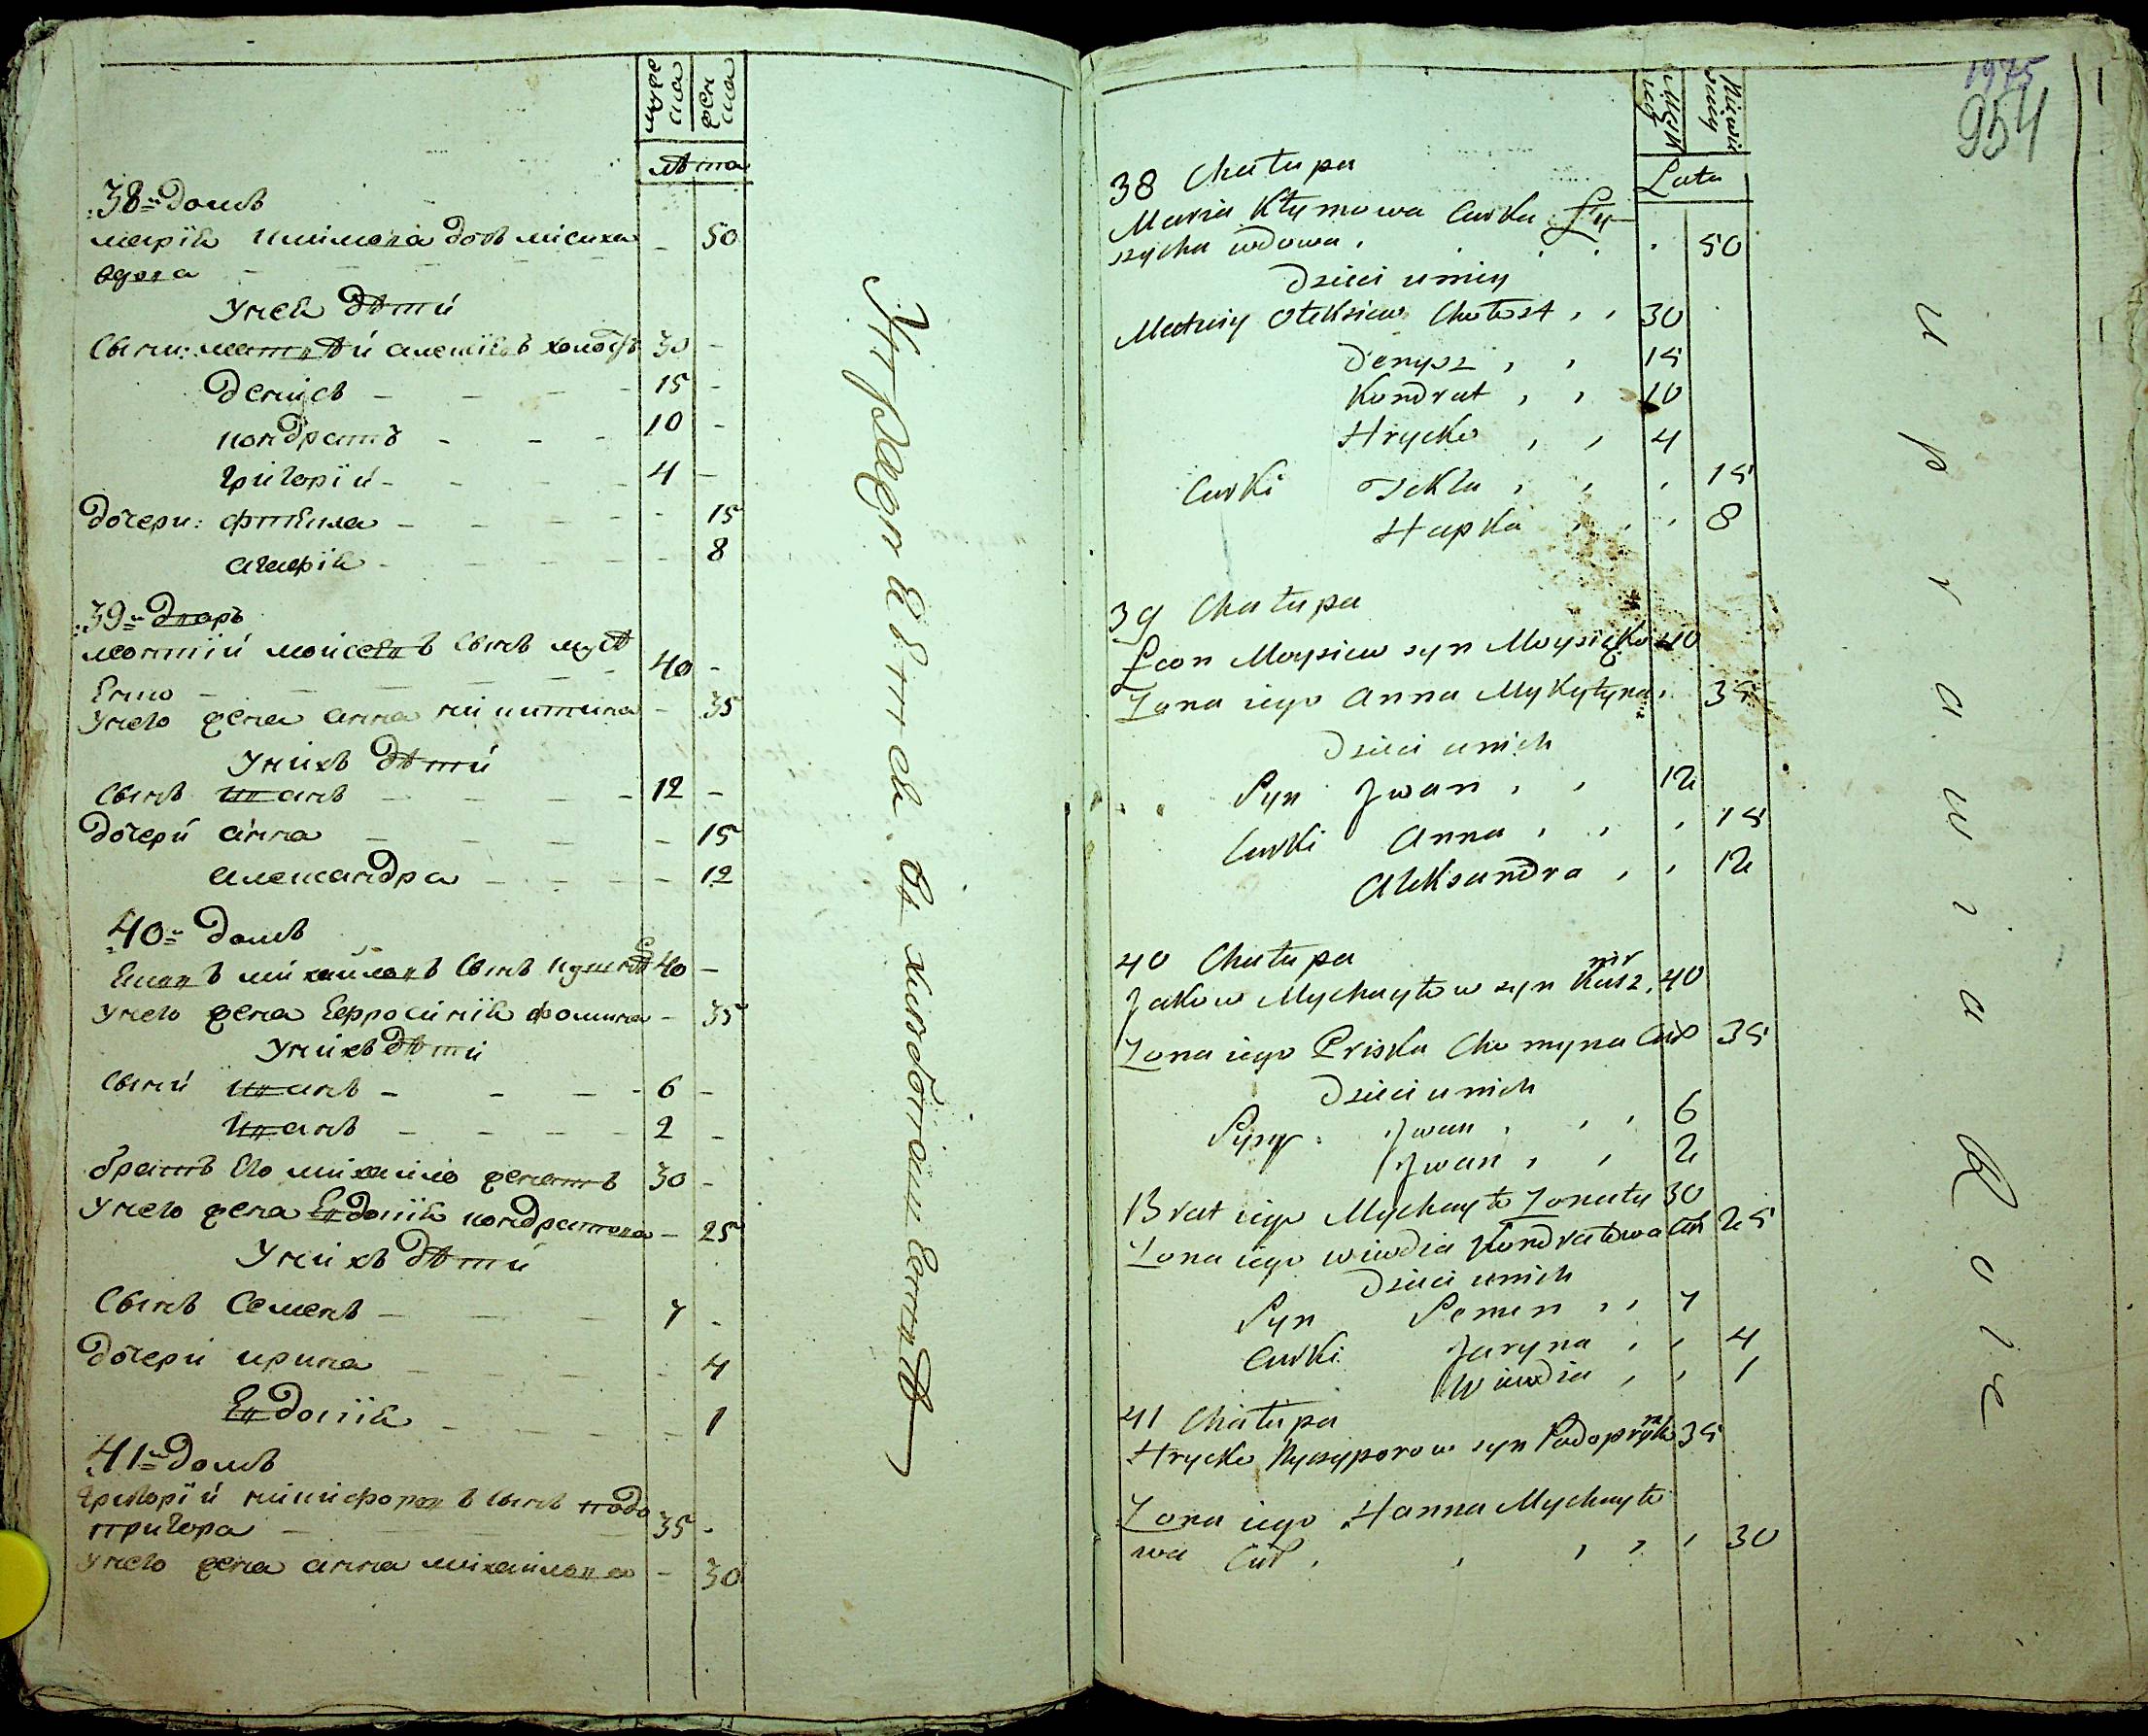 мужеска
женска
лѣта
38й домъ
марія климова дочь лисиха 50
вдова
У нея дѣти
Сыны: матвѣй алексіевъ холостъ 30
денисъ 15
кондратъ 10
григорій 4
дочери: фтекила 15
агафія 8
39й дворъ
леонтій мойсеевъ сынъ мусѣ
енко 40
У него жена анна никитина 35
У нихъ дѣти
сынъ иванъ 12
дочери анна 15
александра 12
40й домъ
Еков михайловъ сынъ 40
У него жена Ефросинія фомина 35
У нихъ дѣти
сыни иванъ 6
иванъ 2
братъ Его михайло женатъ 30
У него жена Евдокія кондратова 25
У нихъ дѣти
Сынъ Семенъ 7
дочери ирина 4
Евдокія 1
41й домъ
григорій никифоровъ сынъ подо
пригора 35
У него жена анна михайлова 30
1975
954
Męsk
Lata
38 Chałupa
Maria Kłymowa Curka Ły
szycha wdowa 50
Dzieci u niey
Matwiy Oleksiew Chołost 30
Denysz 15
Kondrat 10
Hrycko 4
Curki Tekla 15
Hapka 8
39 Chałupa
Łeon Moysiew syn Moysieko 40
Zona iego Anna Mykytyna 35
Dzieci u nich
Syn Jwan 12
Curki Anna 15
Aleksandra 12
40 Chałupa
Jakow Mychayłow syn Kusznir 40
Zona iego Priska Chomyna Cur 35
Dzieci u nich
Syny: Jwan 6
Jwan 2
Brat iego Mychayło Zonaty 30
Zona iego Wiwdia Kondratowa Cur 25
Dzieci u nich
Syn Semen 7
Curki Jaryna 4
Wiwdia 1
41 Chałupa
Hrycko Nyczyporow syn 35
Zona iego Hanna Mychayło
wa Cur 30